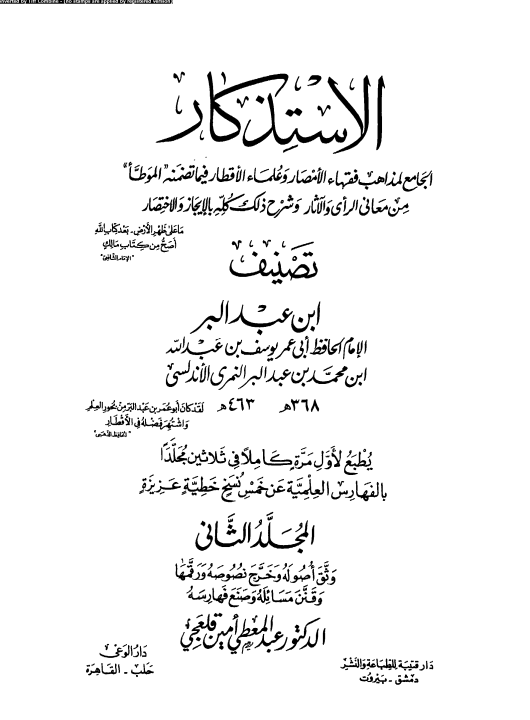 الاستذكار
الجامع لمذاهب فقهاء الأمصار وعلماء الأقطار فيما تضمنه "الموطأ"
من معاني الرأي والآثار وشرح ذلك كله بالإيجاز والاختصار
ما على ظهر الأرض - بعد كتاب الله
أصح من كتاب مالك
"الإمام الشافعي"
تصنيف
ابن عبد البر
الإمام الحافظ أبي عمر يوسف بن عبد الله
ابن محمد بن عبد البر النمري الأندلسي
٣٦٨هـ ٤٦٣هـ
لقد كان أبو عمر بن عبد البر من بحور العلم
واشتهر فضله في الأقطار
"الحافظ الذهبي"
يُطبَعُ لأوَّل مَرَّة كاملاً في ثلاثين مُجلَّدًا
بالفهارس العلمية عن خمس نسخ خطية عزيزة
المجلَّدُ الثَّاني
وثق أصوله وخرج نصوصه ورقمها
وقنن مسائله وصنع فهارسه
الدكتور عبد المعطي أمين قلعجي
دار قتيبة للطباعة والنشر
دمشق - بيروت
دار الوعي
حلب - القاهرة